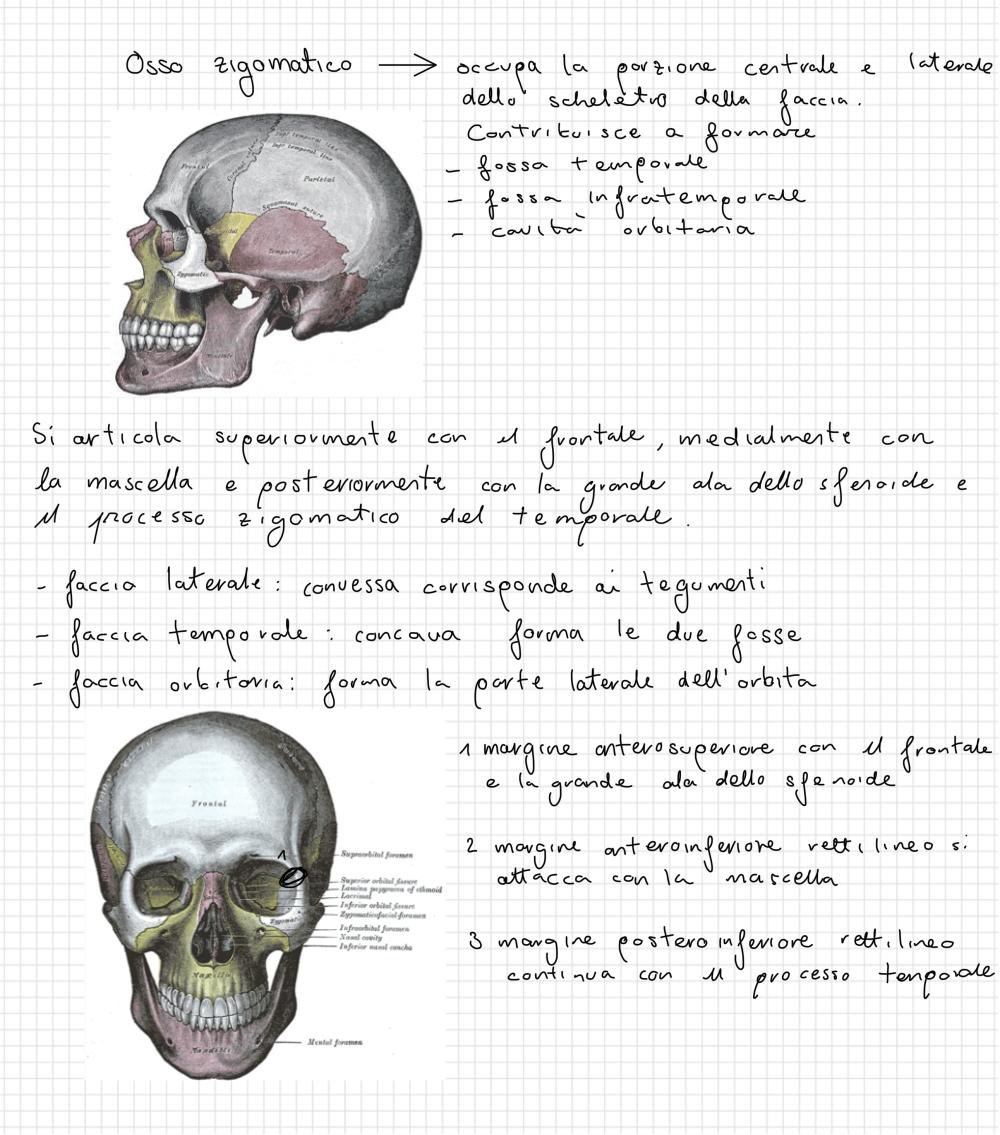 Osso zigomatico → occupa la porzione centrale e laterale
dello scheletro della faccia.
Contribuisce a formare
- fossa temporale
- fossa infratemporale
- cavità orbitaria
Supr. temporal line
Infr. temporal line
Frontal
Coronal suture
Parietal
Squamosal suture
Temporal
Zygomatic
Si articola superiormente con il frontale, medialmente con
la mascella e posteriormente con la grande ala dello sfenoide e
il processo zigomatico del temporale.
- faccia laterale: convessa corrisponde ai tegumenti
- faccia temporale: concava forma le due fosse
- faccia orbitaria: forma la parte laterale dell'orbita
Frontal
1
Supraorbital foramen
Superior orbital fissure
Lamina papyracea of ethmoid
Lacrimal
Inferior orbital fissure
Zygomaticofacial foramen
Zygomatic
Infraorbital foramen
Nasal cavity
Inferior nasal concha
Maxilla
Mental foramen
Mandible
1 margine anterosuperiore con il frontale
e la grande ala dello sfenoide
2 margine anteroinferiore rettilineo si
attacca con la mascella
3 margine posteroinferiore rettilineo
continua con il processo temporale